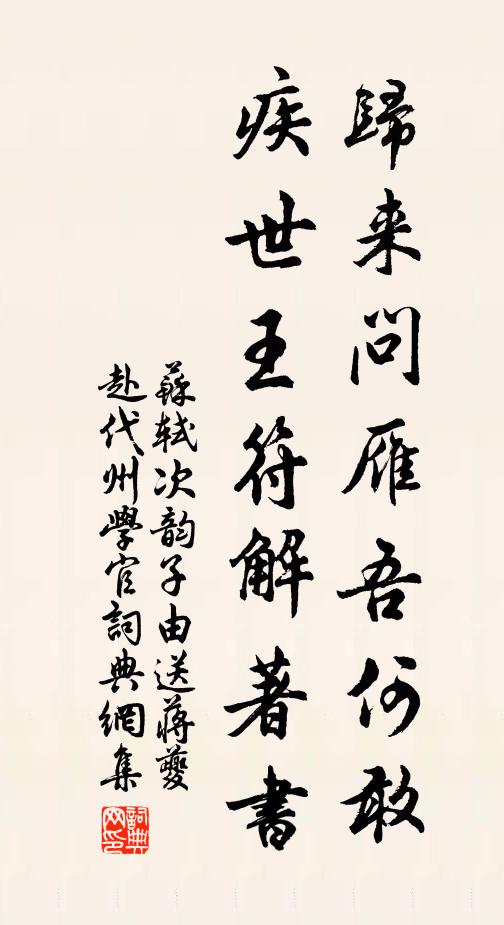 歸来問雁吾何敢
疾世王符解著書
蘇軾次韵子由送蔣夔
赴代州學官詞典網集
詞典
网印